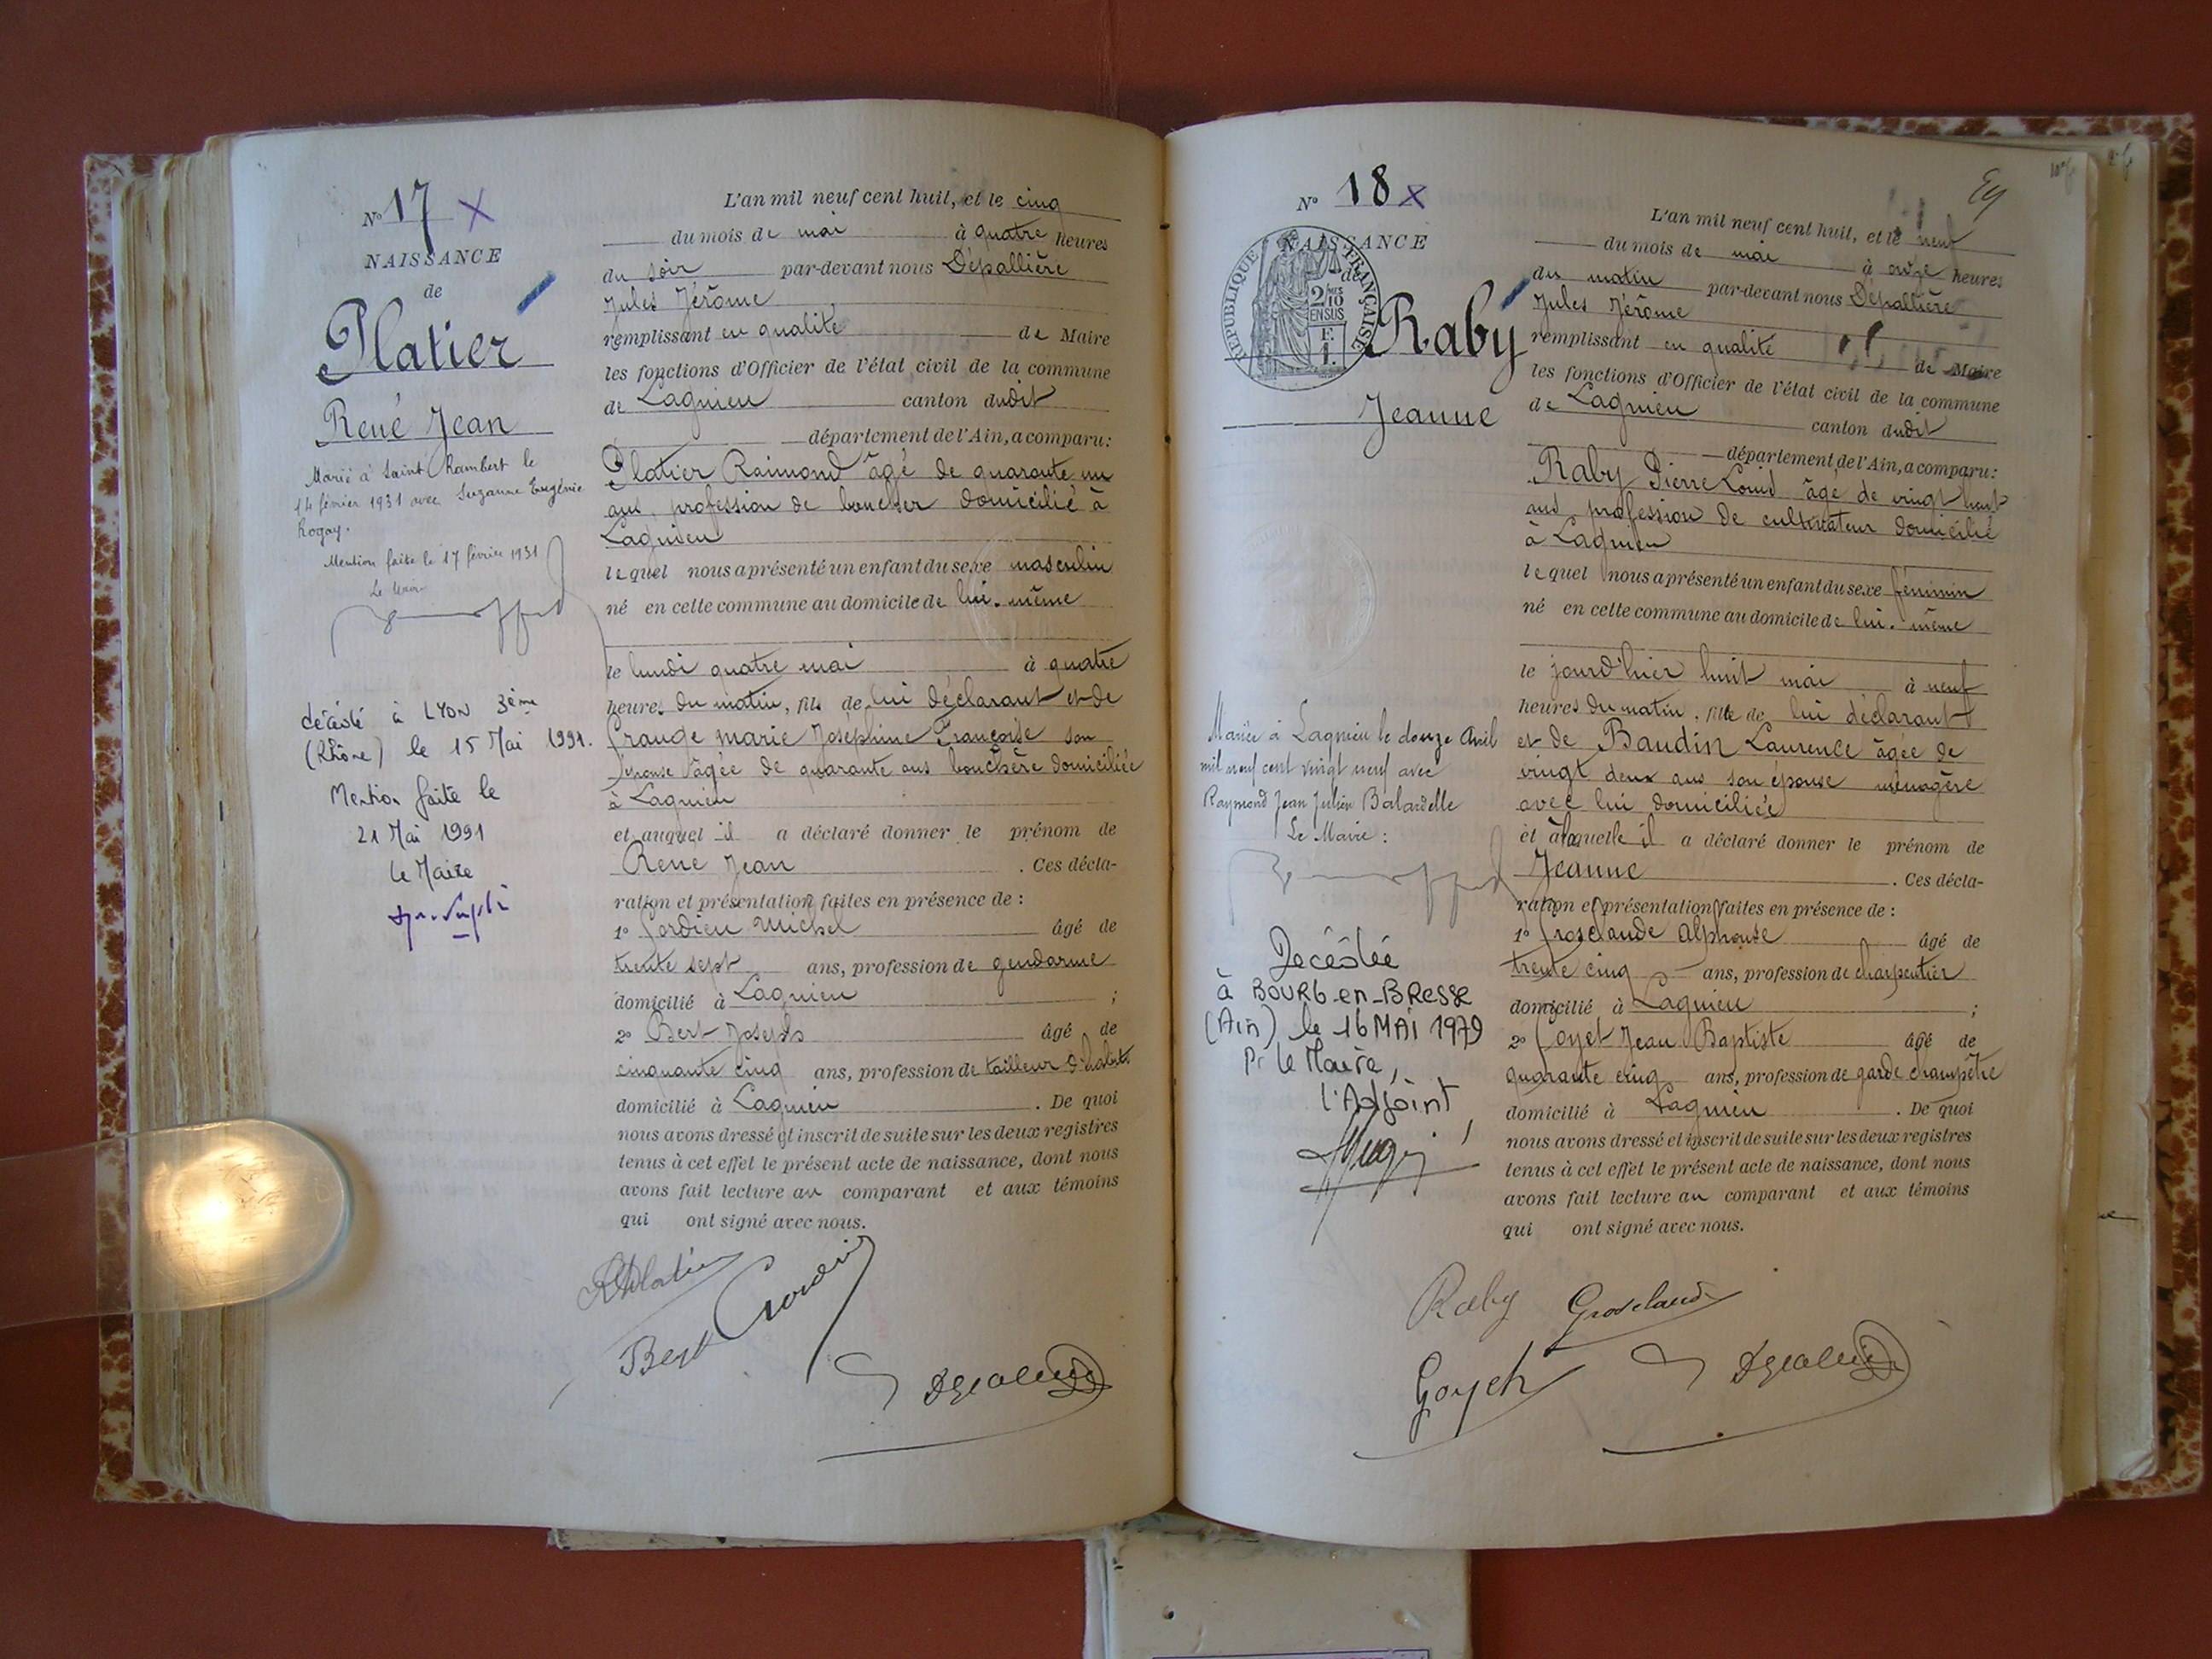 N° 17 X
NAISSANCE
de
Platier
René Jean
Marié à Saint Rambert le
14 février 1931 avec Suzanne Eugénie
Rogay.
Mention faite le 17 février 1931
Le Maire
décédé à LYON 3ème
(Rhône) le 15 Mai 1991.
Mention faite le
21 Mai 1991
Le Maire
L'an mil neuf cent huit, et le cinq
du mois de mai à quatre heures
du soir par-devant nous Dépallière
Jules Jérôme
remplissant en qualité de Maire
les fonctions d'Officier de l'état civil de la commune
de Lagnieu canton dudit
département de l'Ain, a comparu:
Platier Raimond âgé de quarante un
ans, profession de boucher domicilié à
Lagnieu
lequel nous a présenté un enfant du sexe masculin
né en cette commune au domicile de lui-même
le lundi quatre mai à quatre
heures du matin, fils de lui déclarant et de
marie Joséphine Françoise son
épouse âgée de quarante ans bouchère domiciliée
à Lagnieu
et auquel il a déclaré donner le prénom de
René Jean . Ces décla-
ration et présentation faites en présence de :
1° Gordieu Michel âgé de
trente sept ans, profession de gendarme
domicilié à Lagnieu ;
2° Bert Joseph âgé de
cinquante cinq ans, profession de tailleur d'habits
domicilié à Lagnieu . De quoi
nous avons dressé et inscrit de suite sur les deux registres
tenus à cet effet le présent acte de naissance, dont nous
avons fait lecture au comparant et aux témoins
qui ont signé avec nous.
Platier
Bert
N° 18 X
NAISSANCE
de
REPUBLIQUE FRANÇAISE
2/10
EN SUS
Raby
Jeanne
Mariée à Lagnieu le douze Avril
mil neuf cent vingt neuf avec
Raymond Jean Julien Balardelle
Le Maire :
Décédée
à BOURG-en-BRESSE
(Ain) le 16 MAI 1979
Pr le Maire,
l'Adjoint,
L'an mil neuf cent huit, et le neuf
du mois de mai à onze heures
du matin par-devant nous Dépallière
Jules Jérôme
remplissant en qualité de Maire
les fonctions d'Officier de l'état civil de la commune
de Lagnieu canton dudit
département de l'Ain, a comparu:
Raby Pierre Louis âgé de vingt
ans profession de cultivateur domicilié
à Lagnieu
lequel nous a présenté un enfant du sexe féminin
né en cette commune au domicile de lui-même
le jourd'hier huit mai à neuf
heures du matin, fille de lui déclarant
et de Baudin Laurence âgée de
vingt deux ans son épouse ménagère
avec lui domiciliée
et à laquelle il a déclaré donner le prénom de
Jeanne . Ces décla-
ration et présentation faites en présence de :
1° Grosclaude Alphonse âgé de
trente cinq ans, profession de charpentier
domicilié à Lagnieu ;
2° Goyet Jean Baptiste âgé de
quarante cinq ans, profession de garde champêtre
domicilié à Lagnieu . De quoi
nous avons dressé et inscrit de suite sur les deux registres
tenus à cet effet le présent acte de naissance, dont nous
avons fait lecture au comparant et aux témoins
qui ont signé avec nous.
Raby Grosclaude
Goyet